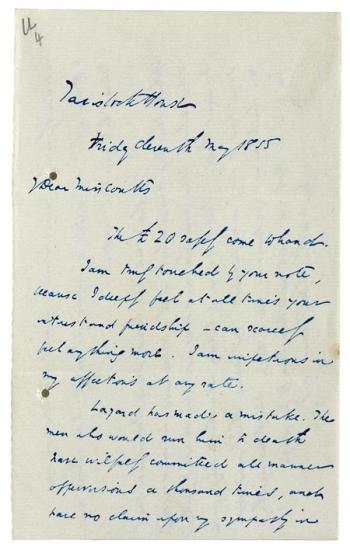 4
Tavistock House
Friday Eleventh May 1855
My Dear Miss Coutts
The £20 safely come to hand.
I am truly touched by your note,
because I deeply feel at all times your
interest and friendship - can scarcely
feel anything more. I am impetuous in
my affections at any rate.
Layard has made a mistake. The
men who would run him to death
have wilfully committed all manner
of a thousand times, and
have no claim upon my sympathy in